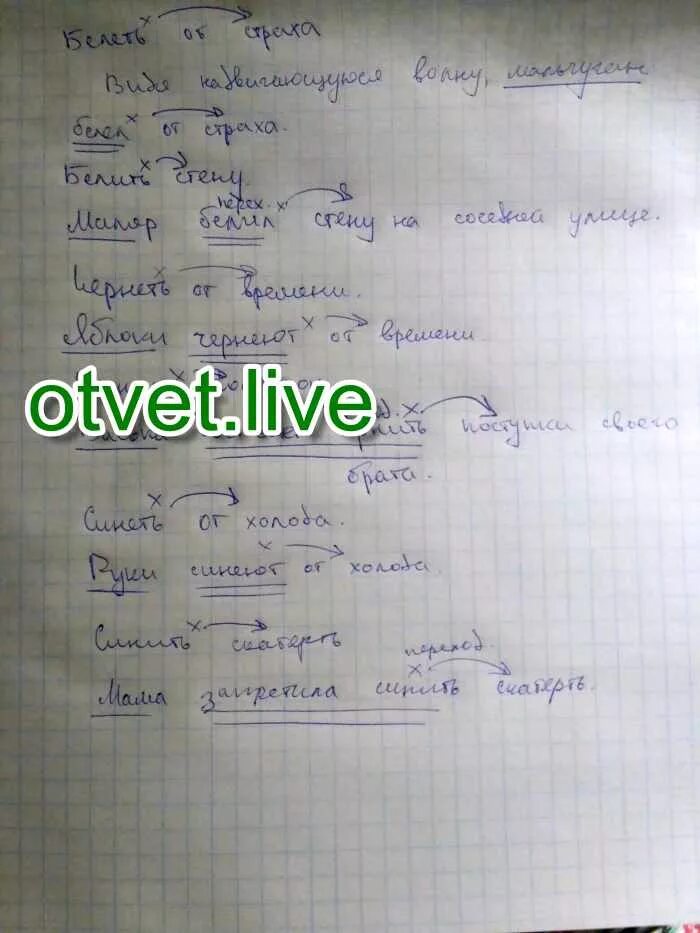 Белеть от страха
Видя надвигающуюся волну, мальчуган
белел от страха.
Белить стену
перех.
Маляр белил стену на соседней улице.
Чернеть от времени.
Яблоки чернеют от времени
otvet.live
поступки своего
брата.
Синеть от холода.
Руки синеют от холода.
Синить скатерть
переход.
Мама запретила синить скатерть.